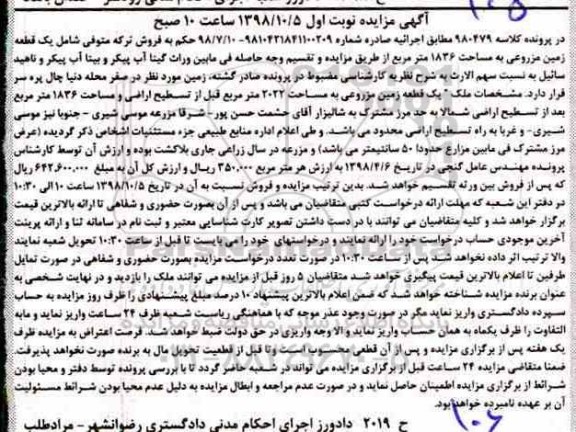 آگهی مزایده نوبت اول ۱۳۹۸/۱۰/۵ ساعت ۱۰ صبح
در پرونده کلاسه ۹۸۰۴۷۹ مطابق اجرائیه صادره شماره ۹۸۱۰۴۲۱۸۴۱۱۰۰۲۰۹ - ۹۸/۷/۱۰ حکم به فروش ترکه متوفی شامل یک قطعه
زمین مزروعی به مساحت ۱۸۳۶ متر مربع از طریق مزایده و تقسیم وجه حاصله فی مابین وراث گیتا آب پیکر و بیتا آب پیکر و ناهید
سائیل به نسبت سهم الارث به شرح نظریه کارشناسی مضبوط در پرونده صادر گشته، زمین مورد نظر در صفر محله دنیا چال پره سر
قرار دارد. مشخصات ملک " یک قطعه زمین مزروعی به مساحت ۲۰۲۲ متر مربع قبل از تسطیح اراضی و مساحت ۱۸۳۶ متر مربع
بعد از تسطیح اراضی شمالا به حد مرز مشترک به شالیزار آقای حشمت حسن پور - شرقا مزرعه موسی شیری - جنوبا نیز موسی
شیری- و غربا به راه تسطیح اراضی محدود می باشد. و طی اعلام اداره منابع طبیعی جزء مستثنیات اشخاص ذکر گردیده (عرض
مرز مشترک فی مابین مزارع حدودا ۵۰ سانتیمتر می باشد) و مزرعه در سال زراعی جاری بلاکشت بوده و ارزش آن توسط کارشناس
پرونده مهندس عامل گنجی در تاریخ ۱۳۹۸/۴/۶ به ارزش هر متر مربع ۳۵۰.۰۰۰ ریال و ارزش کل آن به مبلغ ۶۴۲.۶۰۰.۰۰۰ ریال
که پس از فروش بین ورثه تقسیم خواهد شد. بدین ترتیب مزایده و فروش نسبت به آن در تاریخ ۱۳۹۸/۱۰/۵ ساعت ۱۰ الی ۱۰:۳۰
در دفتر این شعبه که مهلت ارائه درخواست کتبی متقاضیان می باشد و پس از آن بصورت حضوری و شفاهی تا ارائه بالاترین قیمت
برگزار خواهد شد و کلیه متقاضیان می توانند با در دست داشتن تصویر کارت شناسایی معتبر و ثبت نام در سامانه ثنا و ارائه پرینت
آخرین موجودی حساب درخواست خود را ارائه نمایند و درخواستهای خود را می بایست تا قبل از ساعت ۱۰:۳۰ تحویل شعبه نمایند
والا ترتیب اثر داده نخواهد شد پس از ساعت ۱۰:۳۰ در صورت تعدد درخواست مزایده بصورت حضوری و شفاهی در صورت تمایل
طرفین تا اعلام بالاترین قیمت پیگیری خواهد شد متقاضیان ۵ روز قبل از مزایده می توانند ملک را بازدید و در نهایت شخصی به
عنوان برنده مزایده شناخته خواهد شد که ضمن اعلام بالاترین پیشنهاد ۱۰ درصد مبلغ پیشنهادی را ظرف روز مزایده به حساب
سپرده دادگستری واریز نماید مگر در صورت وجود عذر موجه که با هماهنگی ریاست شعبه ظرف ۲۴ ساعت واریز نماید و مابه
التفاوت را ظرف یکماه به همان حساب واریز نماید و الا وجه واریزی در حق دولت ضبط خواهد شد. فرصت اعتراض به مزایده ظرف
یک هفته پس از برگزاری مزایده و پس از آن قطعی محسوب می گردد و تا قبل از قطعیت تحویل مال به برنده صورت نخواهد پذیرفت.
ضمنا متقاضی مزایده ۲۴ ساعت قبل از برگزاری مزایده می تواند در شعبه حاضر گردد تا با بررسی پرونده توسط دفتر و محیا بودن
شرائط از برگزاری مزایده اطمینان حاصل نماید و در صورت عدم مراجعه و ابطال مزایده به دلیل عدم محیا بودن شرائط مسئولیت
آن بر عهده نامبرده خواهد بود.
ح ۲۰۱۹ دادورز اجرای احکام مدنی دادگستری رضوانشهر- مرادطلب
۱۰۶